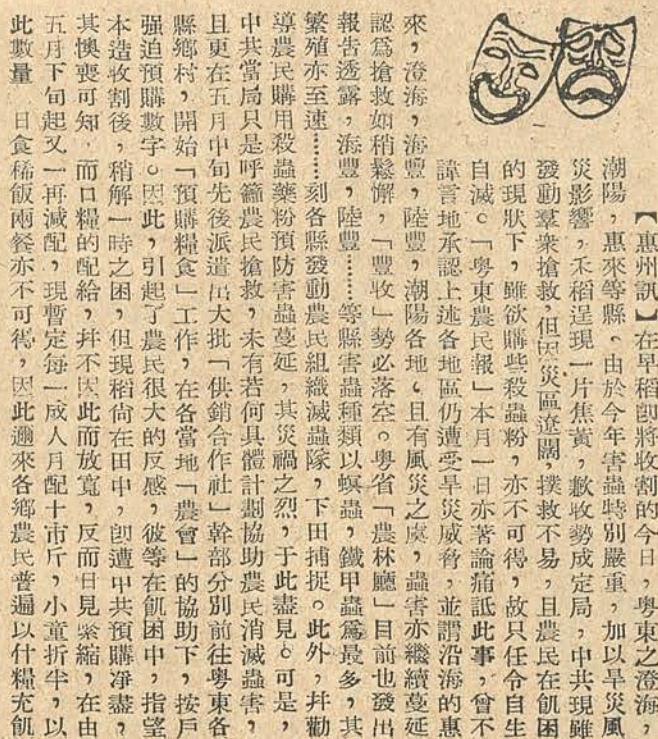 【惠州訊】在早稻卽將收割的今日，粵東之澄海，
潮陽，惠來等縣。由於今年害蟲特別嚴重，加以旱災風
災影響，禾稻呈現一片焦黃，歉收勢成定局，中共現雖
發動羣衆搶救，但因災區遼闊，撲救不易，且農民在飢困
的現狀下，雖欲購些殺蟲粉，亦不可得，故只任令自生
自滅。「粵東農民報」本月一日亦著論痛詆此事，曾不
諱言地承認上述各地區仍遭受旱災威脅，並謂沿海的惠
來，澄海，海豐，陸豐，潮陽各地，且有風災之虞，蟲害亦繼續蔓延
認爲搶救如稍鬆懈，「豐收」勢必落空。粵省「農林廳」目前也發出
報告透露，海豐，陸豐……等縣害蟲種類以螟蟲，鐵甲蟲爲最多，其
繁殖亦至速………刻各縣發動農民組織滅蟲隊，下田捕捉。此外，幷勸
導農民購用殺蟲藥粉預防害蟲蔓延，其災禍之烈，于此盡見。可是，
中共當局只是呼籲農民搶救，未有若何具體計劃協助農民消滅蟲害，
且更在五月中旬先後派遣出大批「供銷合作社」幹部分別前往粵東各
縣鄉村，開始「預購糧食」工作，在各當地「農會」的協助下，按戶
强迫預購數字。因此，引起了農民很大的反感，彼等在飢困中，指望
本造收割後，稍解一時之困，但現稻尙在田中，卽遭中共預購凈盡，
其懊喪可知，而口糧的配給，幷不因此而放寬，反而日見緊縮，在由
五月下旬起又一再減配，現暫定每一成人月配十市斤，小童折半，以
此數量　日食稀飯兩餐亦不可得，因此邇來各鄉農民普遍以什糧充飢